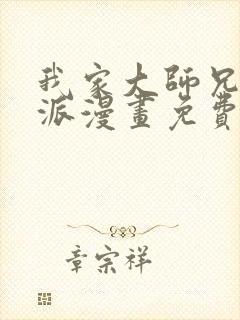 我家大師兄
派漫畫免費
章宗祥